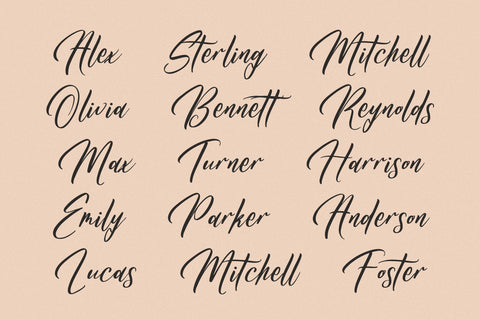 Alex Sterling Mitchell
Olivia Bennett Reynolds
Max Turner Harrison
Emily Parker Anderson
Lucas Mitchell Foster